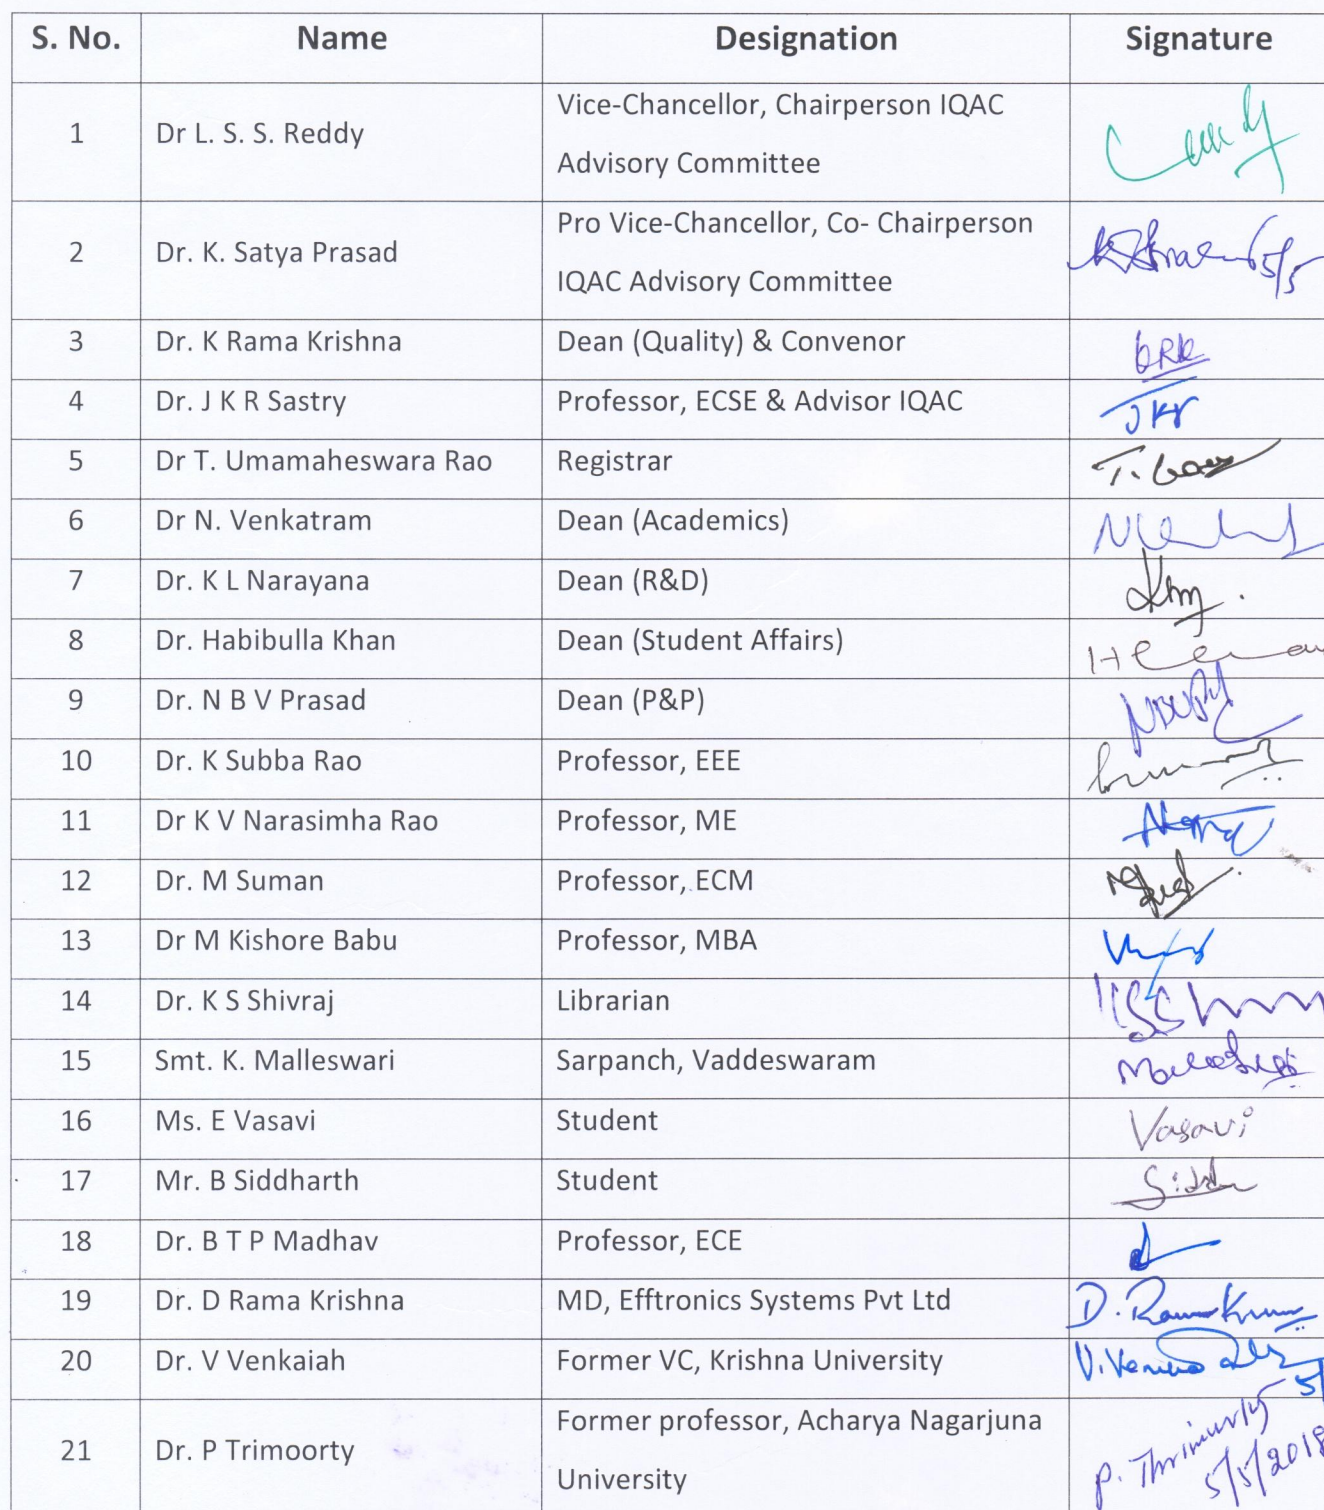 S. No. Name Designation Signature
Vice-Chancellor, Chairperson IQAC
1 Dr L. S. S. Reddy
Advisory Committee
Pro Vice-Chancellor, Co- Chairperson
2 Dr. K. Satya Prasad 5/5
IQAC Advisory Committee
3 Dr. K Rama Krishna Dean (Quality) & Convenor KRK
4 Dr. J K R Sastry Professor, ECSE & Advisor IQAC JKR
5 Dr T. Umamaheswara Rao Registrar
6 Dr N. Venkatram Dean (Academics)
7 Dr. K L Narayana Dean (R&D)
8 Dr. Habibulla Khan Dean (Student Affairs)
9 Dr. N B V Prasad Dean (P&P)
10 Dr. K Subba Rao Professor, EEE
11 Dr K V Narasimha Rao Professor, ME
12 Dr. M Suman Professor, ECM
13 Dr M Kishore Babu Professor, MBA
14 Dr. K S Shivraj Librarian
15 Smt. K. Malleswari Sarpanch, Vaddeswaram
16 Ms. E Vasavi Student Vasavi
17 Mr. B Siddharth Student
18 Dr. B T P Madhav Professor, ECE
19 Dr. D Rama Krishna MD, Efftronics Systems Pvt Ltd
20 Dr. V Venkaiah Former VC, Krishna University
Former professor, Acharya Nagarjuna
21 Dr. P Trimoorty P. Thrimurty
University 5/5/2018